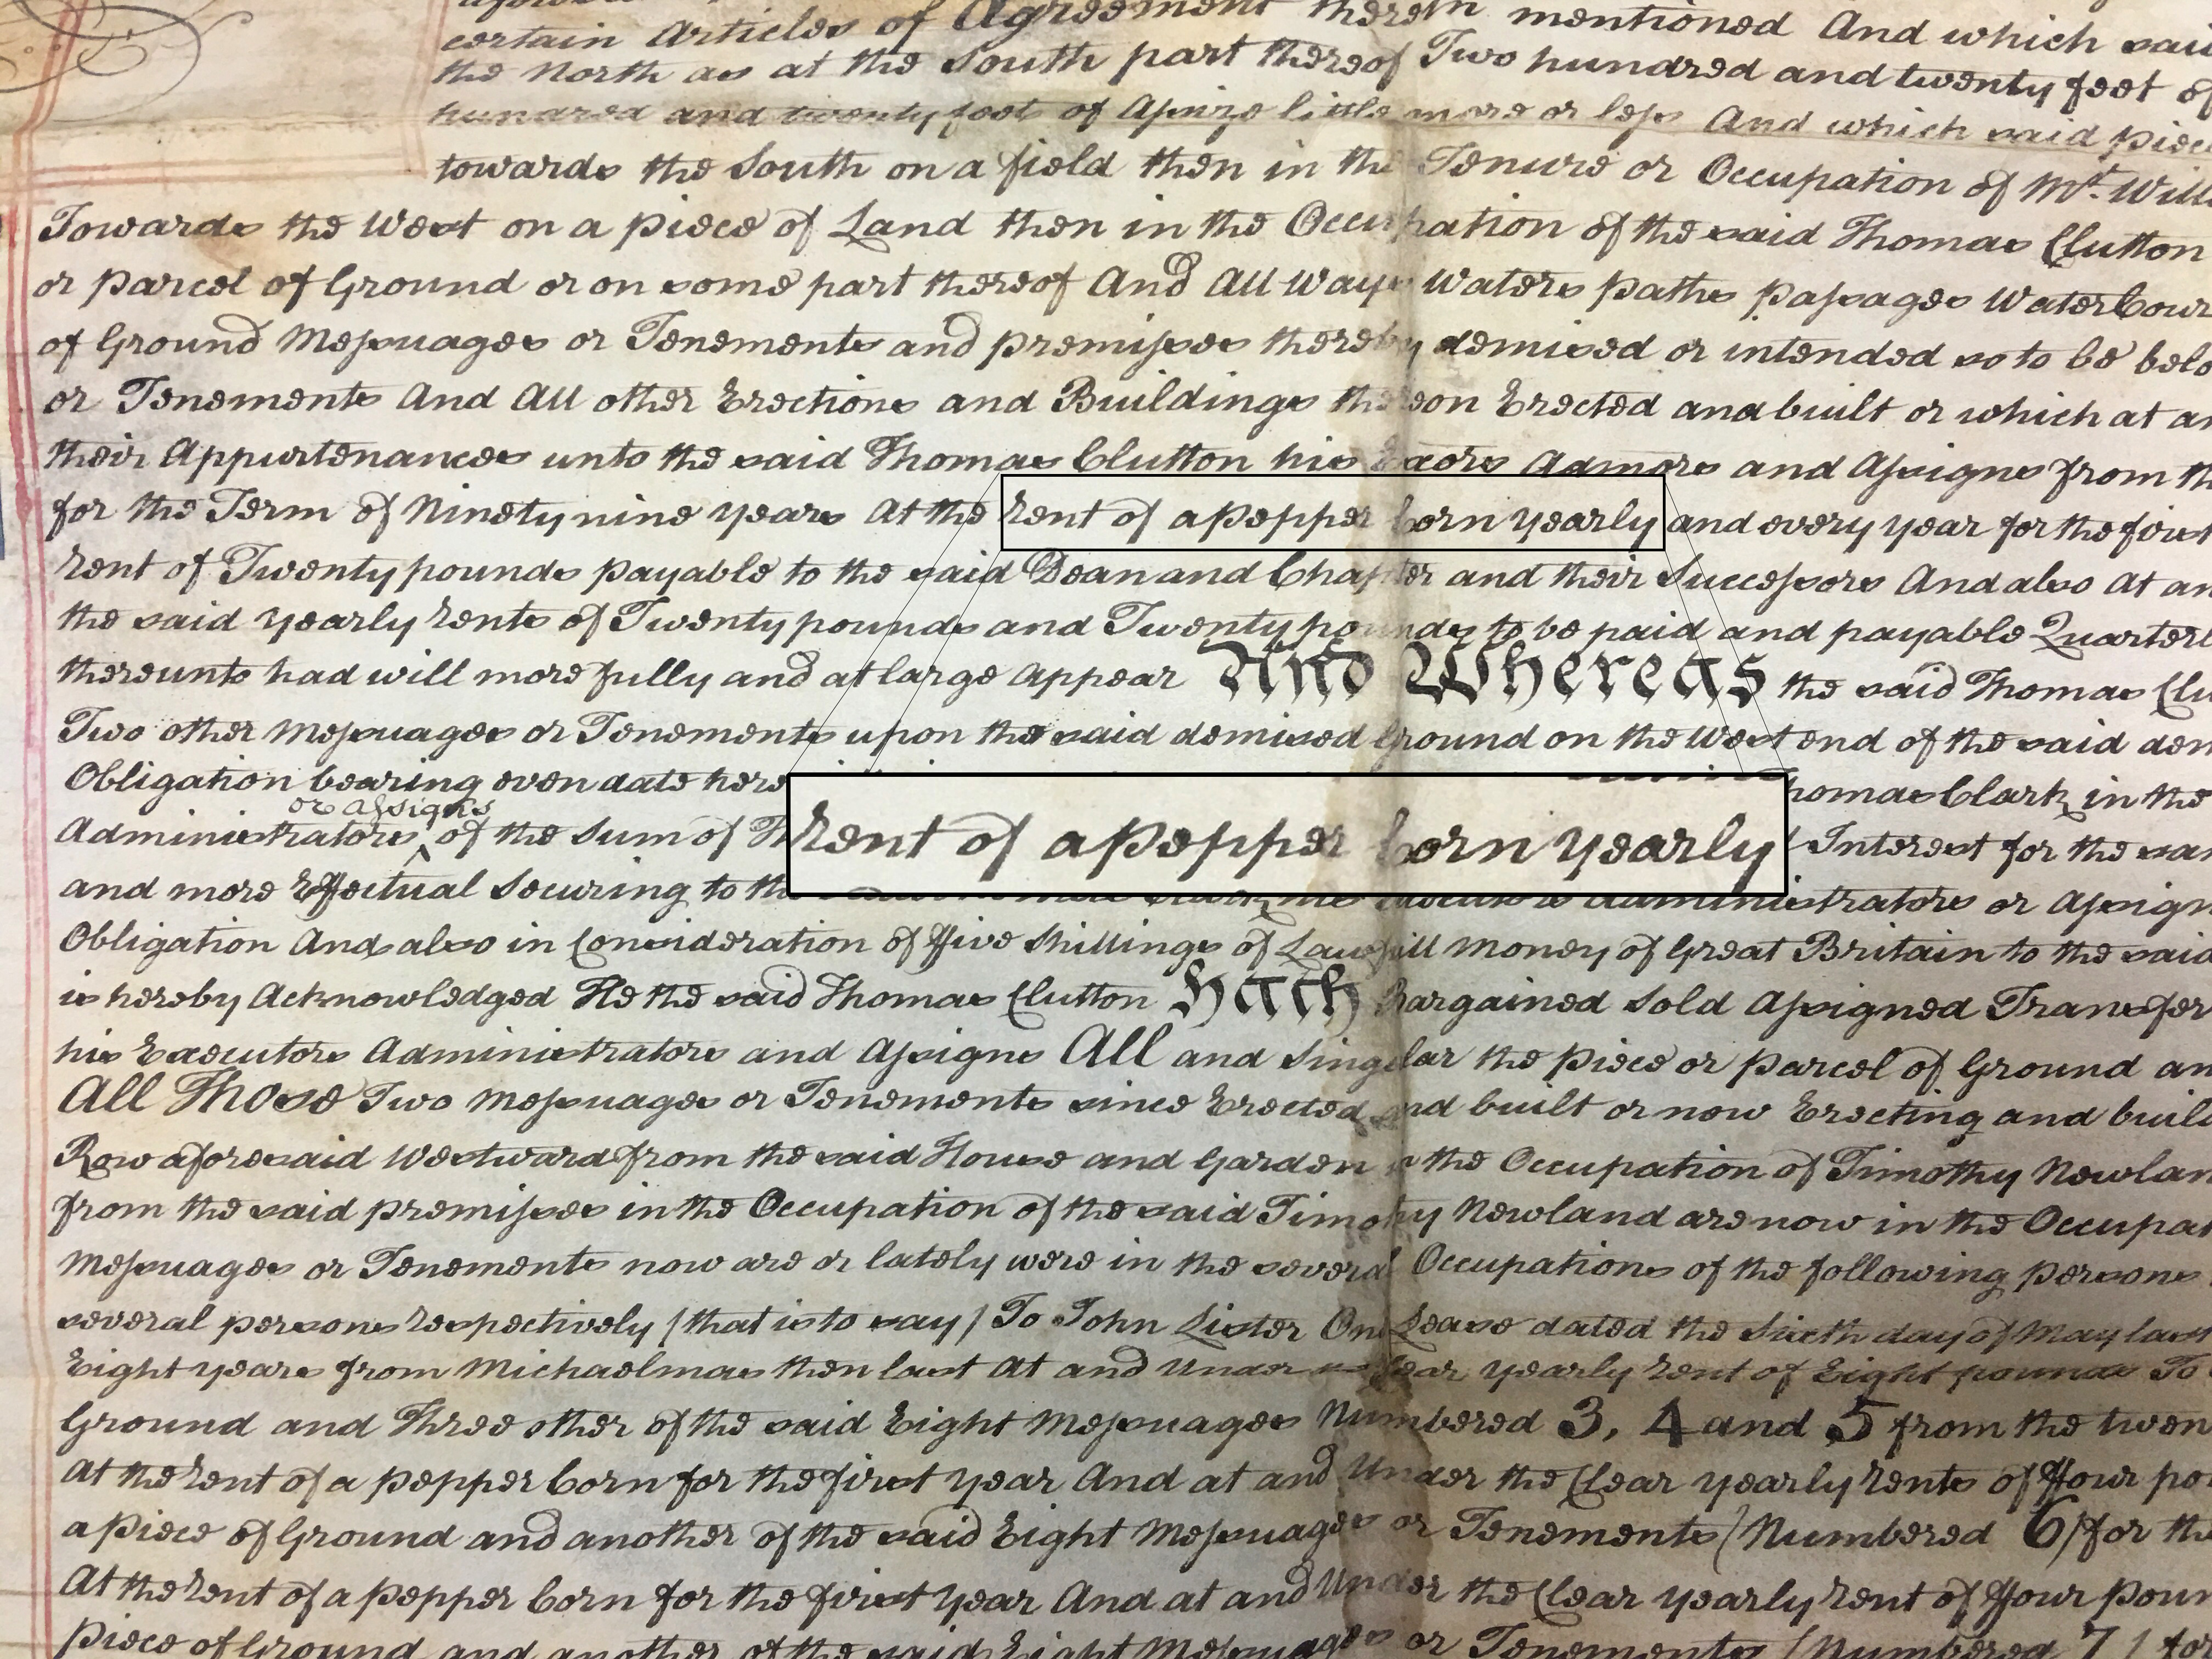 certain Articles of Agreement therein mentioned And which said
the North as at the South part thereof Two hundred and twenty feet of
hundred and twenty feet of Assize little more or less And which said piec
towards the South on a field then in the Tenure or Occupation of Mr. Willi
Towards the West on a piece of Land then in the Occupation of the said Thomas Clutton
or parcel of Ground or on some part thereof And All Ways Waters paths passages WaterCour
of Ground Messuages or Tenements and premisses thereby demised or intended so to be belo
or Tenements And All other Erections and Buildings thereon Erected and built or which at an
their Appurtenances unto the said Thomas Clutton his Exors Admors and Assigns from th
for the Term of Ninety nine years At the rent of a pepper Corn yearly and every year for the first
rent of Twenty pounds payable to the said Dean and Chapter and their Successors And also At an
the said yearly rents of Twenty pounds and Twenty pounds to be paid and payable Quarterl
thereunto had will more fully and at large appear And Whereas the said Thomas Clu
Two other Messuages or Tenements upon the said demised Ground on the West end of the said dem
Obligation bearing even date here homas Clark in the
or assigns
Administrators of the Sum of Th rent of a pepper Corn yearly Interest for the sam
and more Effectual Securing to th Administrators or Assign
Obligation And also in Consideration of Five Shillings of Lawfull Money of Great Britain to the said
is hereby Acknowledged He the said Thomas Clutton Hath Bargained Sold Assigned Transfer
his Executors Administrators and Assigns All and Singular the piece or parcel of Ground an
All Those Two Messuages or Tenements since Erected and built or now Erecting and build
Row aforesaid Westward from the said House and Garden in the Occupation of Timothy Newlan
from the said premisses in the Occupation of the said Timothy Newland are now in the Occupat
Messuages or Tenements now are or lately were in the several Occupations of the following persons
several persons respectively (that is to say) To John Lister On Lease dated the Sixth day of May last
Eight years from Michaelmas then last At and Under Clear yearly rent of Eight pounds To
Ground and Three other of the said Eight Messuages Numbered 3, 4 and 5 from the twen
At the rent of a pepper Corn for the first year And at and Under the Clear yearly rents of Four po
a piece of Ground and another of the said Eight Messuages or Tenements (Numbered 6) for the
At the rent of a pepper Corn for the first year And at and Under the Clear yearly rent of Four poun
piece of Ground and another of the said Eight Messuages or Tenements (Numbered 7) for